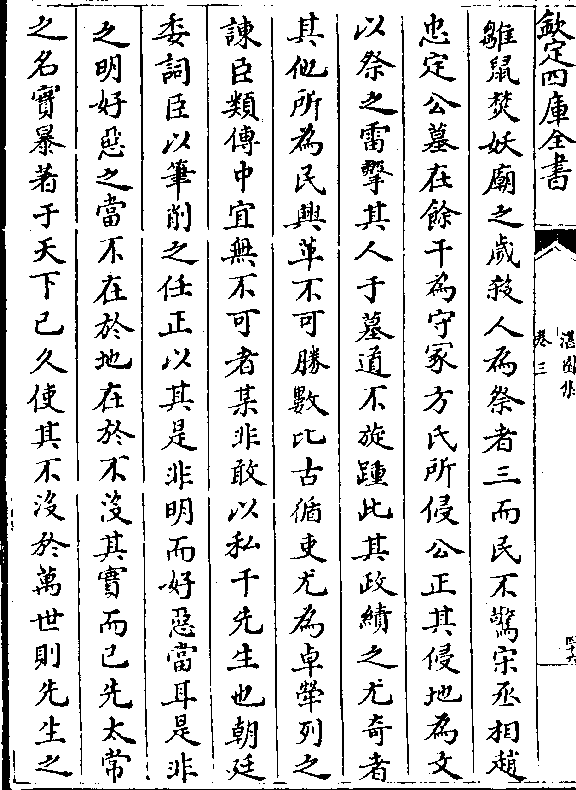 欽定四庫全書
湛園集
卷三
四十六
雛鼠焚妖廟之歲殺人為祭者三而民不驚宋丞相趙
忠定公墓在餘干為守冢方氏所侵公正其侵地為文
以祭之雷擊其人于墓道不旋踵此其政績之尤奇者
其他所為民興革不可勝數比古循吏尤為卓犖列之
諫臣類傳中宜無不可者某非敢以私干先生也朝廷
委詞臣以筆削之任正以其是非明而好惡當耳是非
之明好惡之當不在於地在於不沒其實而已先太常
之名實暴著于天下已久使其不沒於萬世則先生之